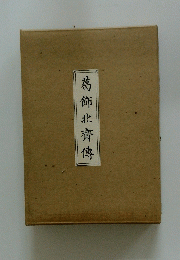 葛飾北齋傳